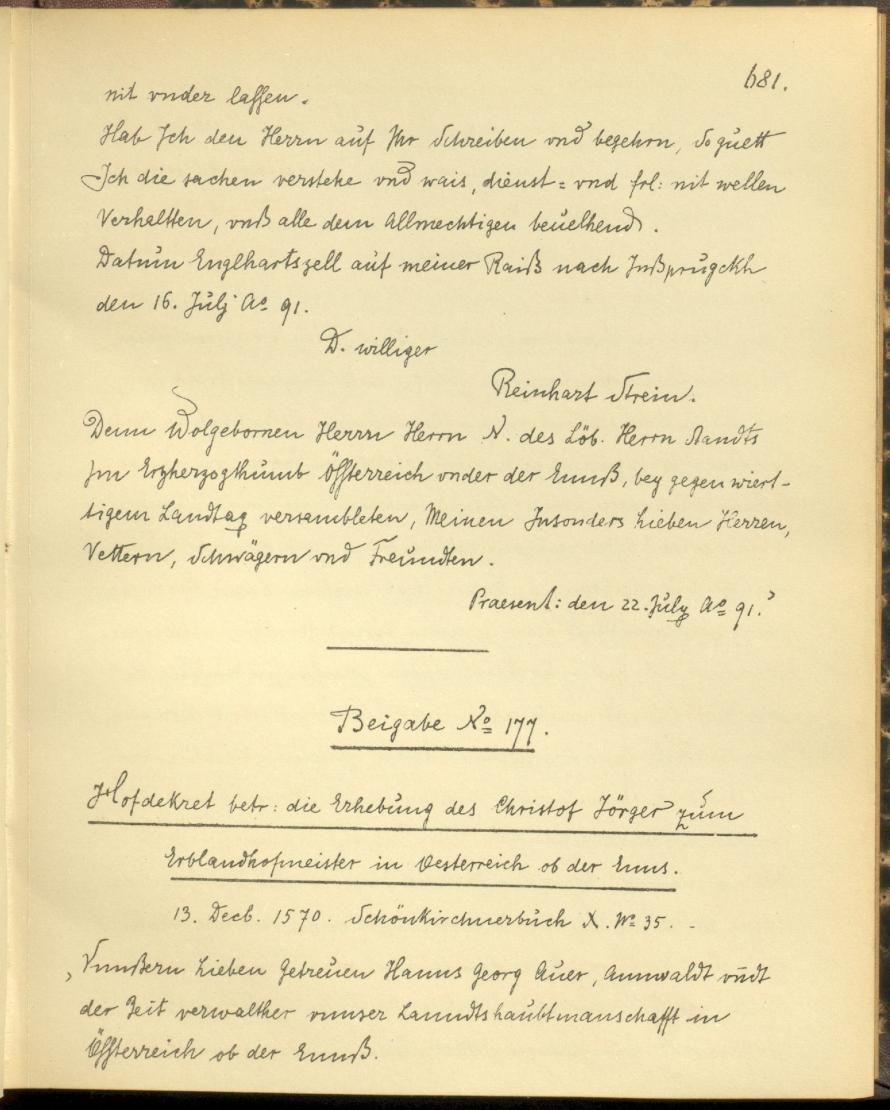 681.
nit vnder lassen.
Hab Ich den Herrn auf Ihr Schreiben vnd begehrn, So guett
Ich die sachen verstehe vnd wais, dienst= vnd frl: nit wellen
Verhaltten, vnß alle dem Allmechtigen beuelhend.
Datum Englhartszell auf meiner Raiß nach Inßprugckh
den 16. Julj Ao 91.
D. williger
Reinhart Strein.
Denn Wolgebornen Herrn Herrn N. des Löb. Herrn Standts
Im Erzherzogthumb Össterreich vnder der Ennß, bey gegenwiert-
tigem Landtag versambleten, Meinen Insonders Lieben Herren,
Vettern, Schwägern vnd Freundten.
Praesent: den 22. July Ao 91."
Beigabe No 177.
Hofdekret betr: die Erhebung des Christof Jörger zum
Erblandhofmeister in Oesterreich ob der Enns.
13. Decb. 1570. Schönkirchnerbuch X. No 35.
„Vnnßern Lieben Getreuen Hanns Georg Auer, Annwaldt vndt
der Zeit verwalther vnnser Lanndtshaubtmanschafft in
Össterreich ob der Ennß.